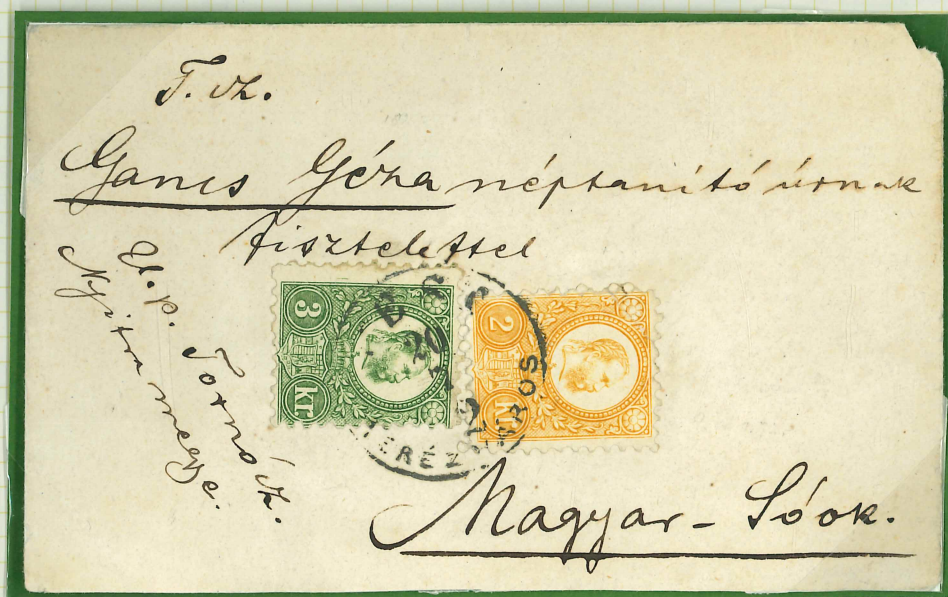 T. cz.
Gancs Géza néptanító úrnak
tisztelettel
U. p. Tornócz.
Nyitra megye.
3
kr
2
kr
TERÉZVÁROS
Magyar-Sóok.